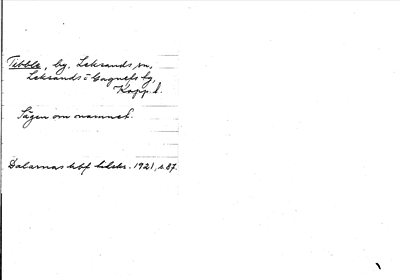 Tibble, by, Leksands sn,
Leksands o Gagnefs tg,
Kopp. l.
Sägen om namnet.
Dalarnas hbf tidskr. 1921, s. 87.